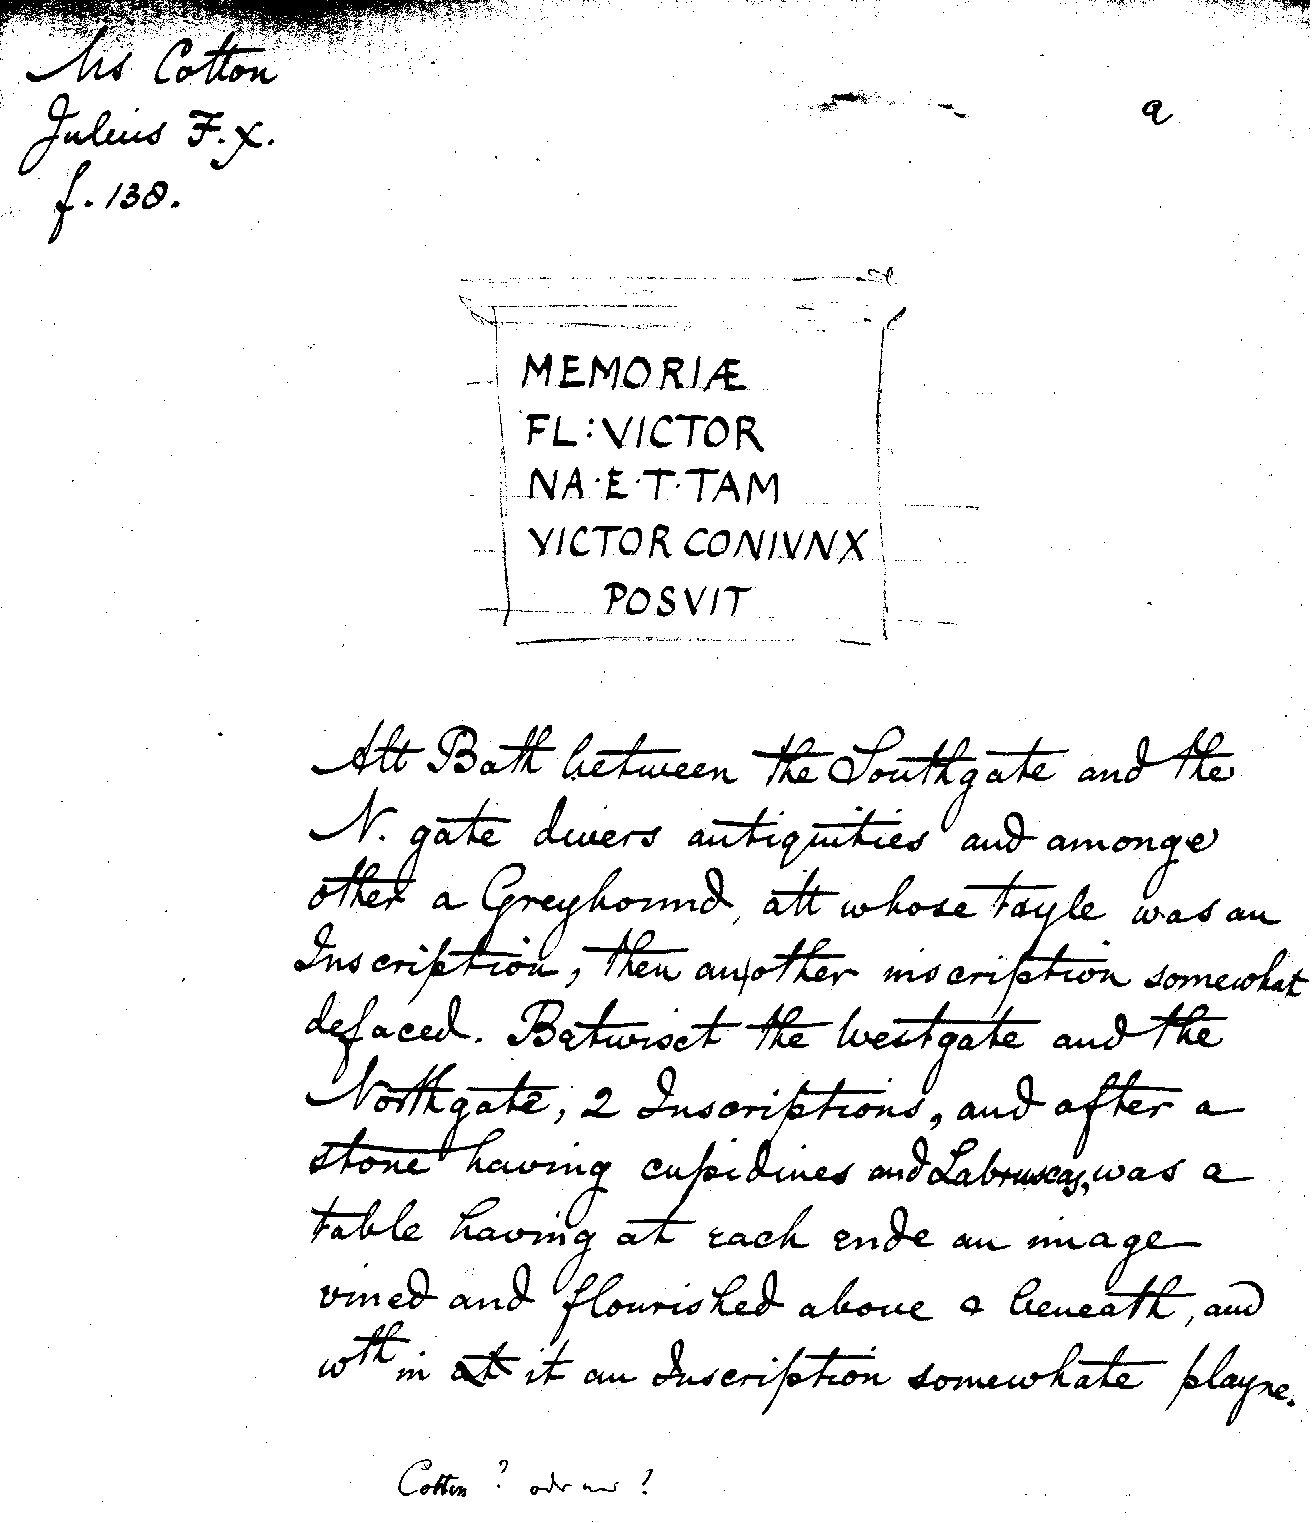 Ms Cotton
Julius F. X.
f. 138.
a
MEMORIÆ
FL:VICTOR
NA·E·T·TAM
VICTOR CONIVNX
POSVIT
Att Bath between the Southgate and the
N. gate divers antiquities and amonge
other a Greyhound, att whose tayle was an
Inscription, then another inscription somewhat
defaced. Betwixt the Westgate and the
Northgate, 2 Inscriptions, and after a
stone having cupidines and Labruscas, was a
table having at each ende an image
vined and flourished above & beneath, and
wth in at it an Inscription somewhate playne.
Cotton ? oder ?